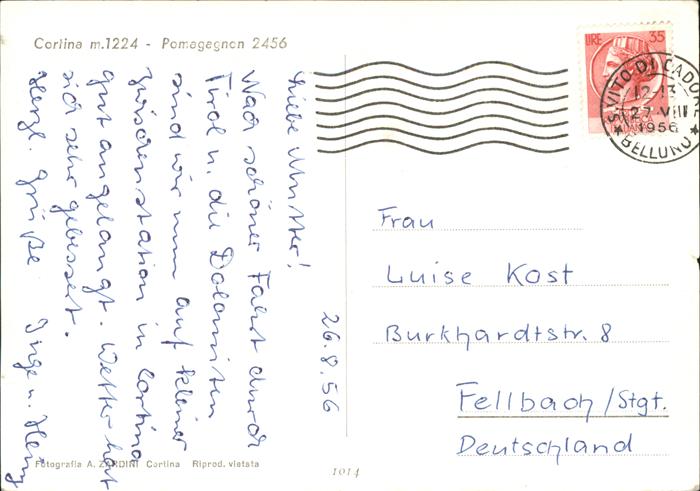 Cortina m.1224 - Pomagagnon 2456
26.8.56
Liebe Mutter!
Nach schöner Fahrt durch
Tirol u. die Dolomiten
sind wir nun auf kleiner
Zwischenstation in Cortina
gut angelangt. Wetter hat
sich sehr gebessert.
Herzl. Grüße Inge u. Heinz
LIRE 35
S. VITO DI CADORE
12-13
27-VIII
1956
BELLUNO
Frau
Luise Kost
Burkhardtstr. 8
Fellbach/Stgt.
Deutschland
Fotografia A. ZARDINI Cortina Riprod. vietata
1014